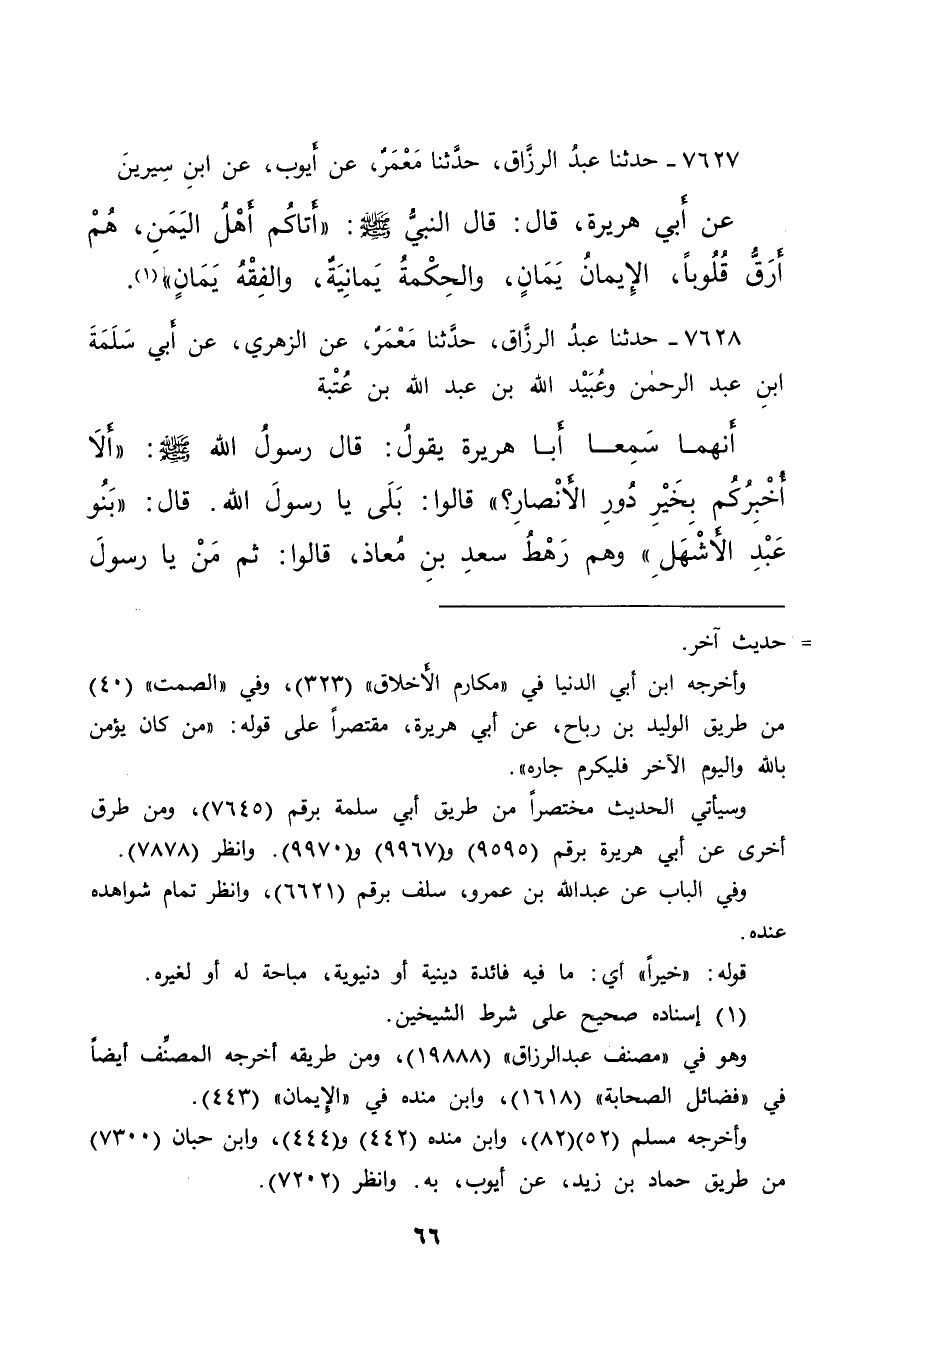 ٧٦٢٧ ـ حدثنا عبدُ الرزَّاق، حدَّثنا مَعْمَرٌ، عن أَيوب، عن ابنِ سِيرينَ
عن أَبي هريرة، قال: قال النبيُّ ﷺ: «أَتاكُم أَهْلُ اليَمَنِ، هُمْ
أَرَقُّ قُلُوباً، الإِيمانُ يَمَانٍ، والحِكْمةُ يَمانِيَةٌ، والفِقْهُ يَمَانٍ»(١).
٧٦٢٨ ـ حدثنا عبدُ الرزَّاق، حدَّثنا مَعْمَرٌ، عن الزهري، عن أَبي سَلَمَةَ
ابنِ عبد الرحمٰن وعُبَيْد الله بن عبد الله بن عُتْبة
أَنهما سَمِعا أَبا هريرة يقولُ: قال رسولُ الله ﷺ: «أَلَا
أُخْبِرُكُم بِخَيْرِ دُورِ الأَنْصارِ؟» قالوا: بَلَى يا رسولَ الله. قال: «بَنُو
عَبْدِ الأَشْهَلِ» وهم رَهْطُ سعدِ بنِ مُعاذ، قالوا: ثم مَنْ يا رسولَ
= حديث آخر.
وأخرجه ابن أبي الدنيا في «مكارم الأَخلاق» (٣٢٣)، وفي «الصمت» (٤٠)
من طريق الوليد بن رباح، عن أبي هريرة، مقتصراً على قوله: «من كان يؤمن
بالله واليوم الآخر فليكرم جاره».
وسيأتي الحديث مختصراً من طريق أبي سلمة برقم (٧٦٤٥)، ومن طرق
أخرى عن أبي هريرة برقم (٩٥٩٥) و(٩٩٦٧) و(٩٩٧٠). وانظر (٧٨٧٨).
وفي الباب عن عبدالله بن عمرو، سلف برقم (٦٦٢١)، وانظر تمام شواهده
عنده.
قوله: «خيراً» أي: ما فيه فائدة دينية أو دنيوية، مباحة له أو لغيره.
(١) إسناده صحيح على شرط الشيخين.
وهو في «مصنف عبدالرزاق» (١٩٨٨٨)، ومن طريقه أخرجه المصنِّف أيضاً
في «فضائل الصحابة» (١٦١٨)، وابن منده في «الإِيمان» (٤٤٣).
وأخرجه مسلم (٥٢)(٨٢)، وابن منده (٤٤٢) و(٤٤٤)، وابن حبان (٧٣٠٠)
من طريق حماد بن زيد، عن أيوب، به. وانظر (٧٢٠٢).
٦٦